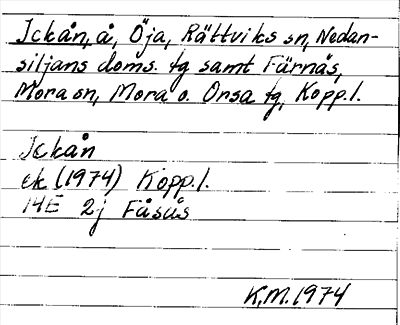 Ickån, å, Öja, Rättviks sn, Nedan-
siljans doms. tg samt Färnäs,
Mora sn, Mora o. Orsa tg, Kopp.l.
Ickån
ek (1974) Kopp.l.
14E 2j Fåsås
K.M. 1974